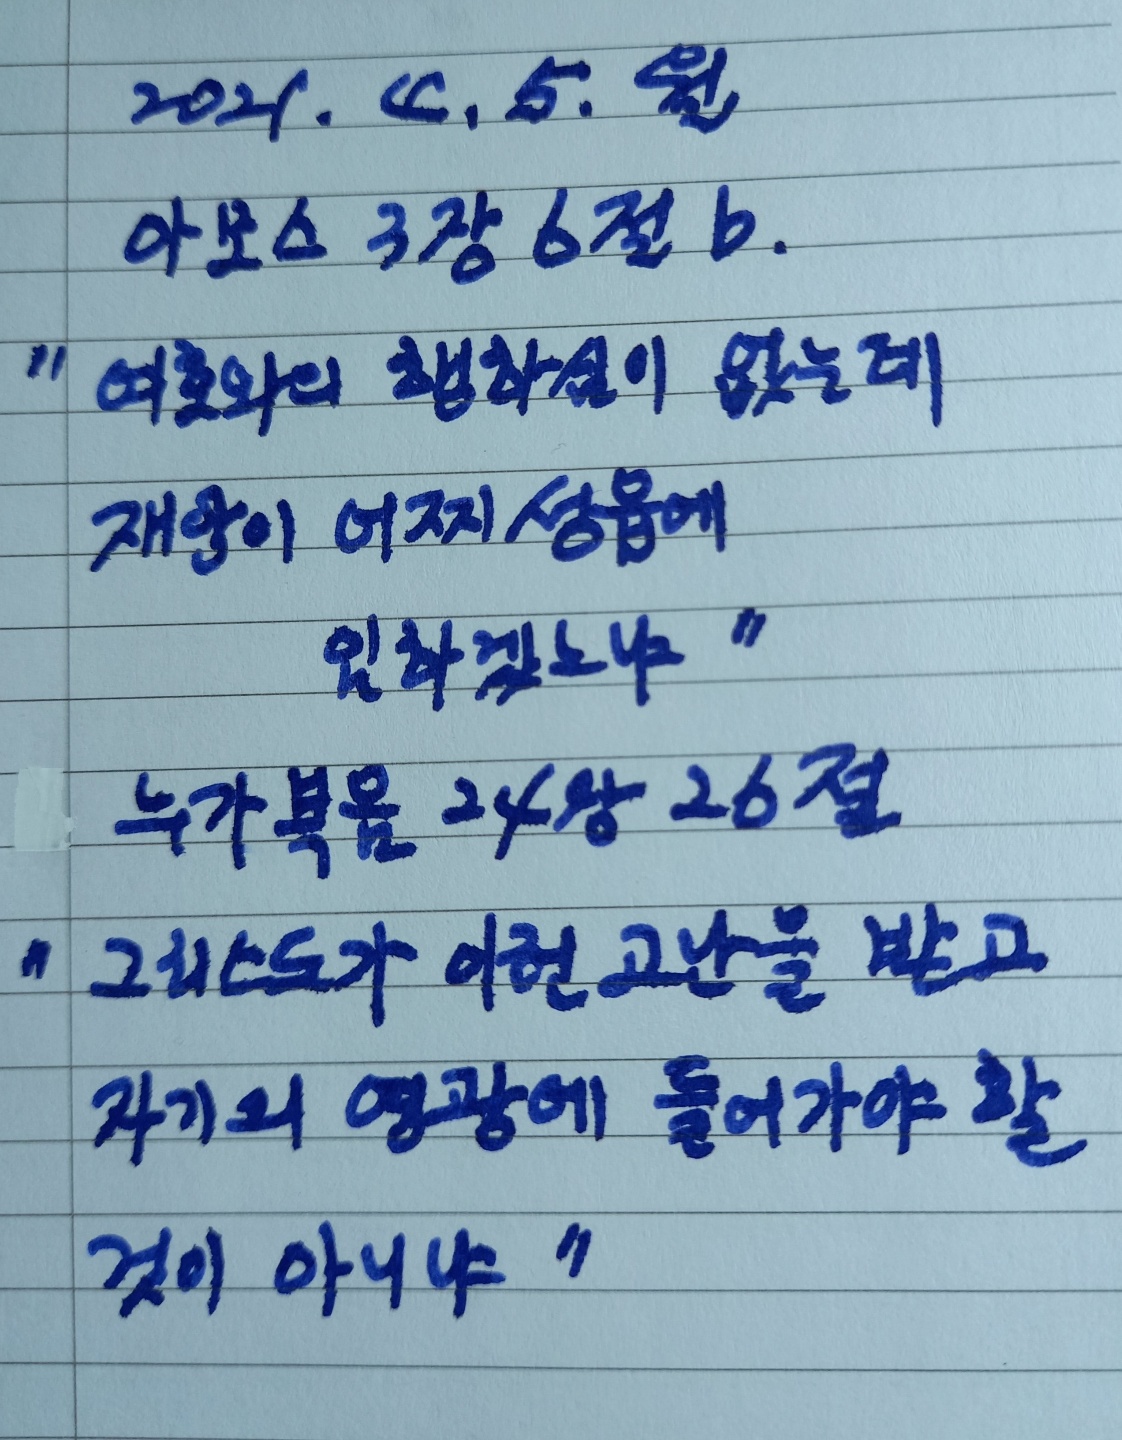 2021. 4. 5. 월
아모스 3장 6절 b.
"여호와의 행하심이 없는데
재앙이 어찌 성읍에
임하겠느냐"
누가복음 24장 26절
"그리스도가 이런 고난을 받고
자기의 영광에 들어가야 할
것이 아니냐"